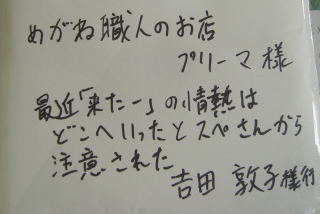 めがね職人のお店
プリーマ様
最近「来たー」の情熱は
どこへいったとスペさんから
注意された
吉田 敦子様行